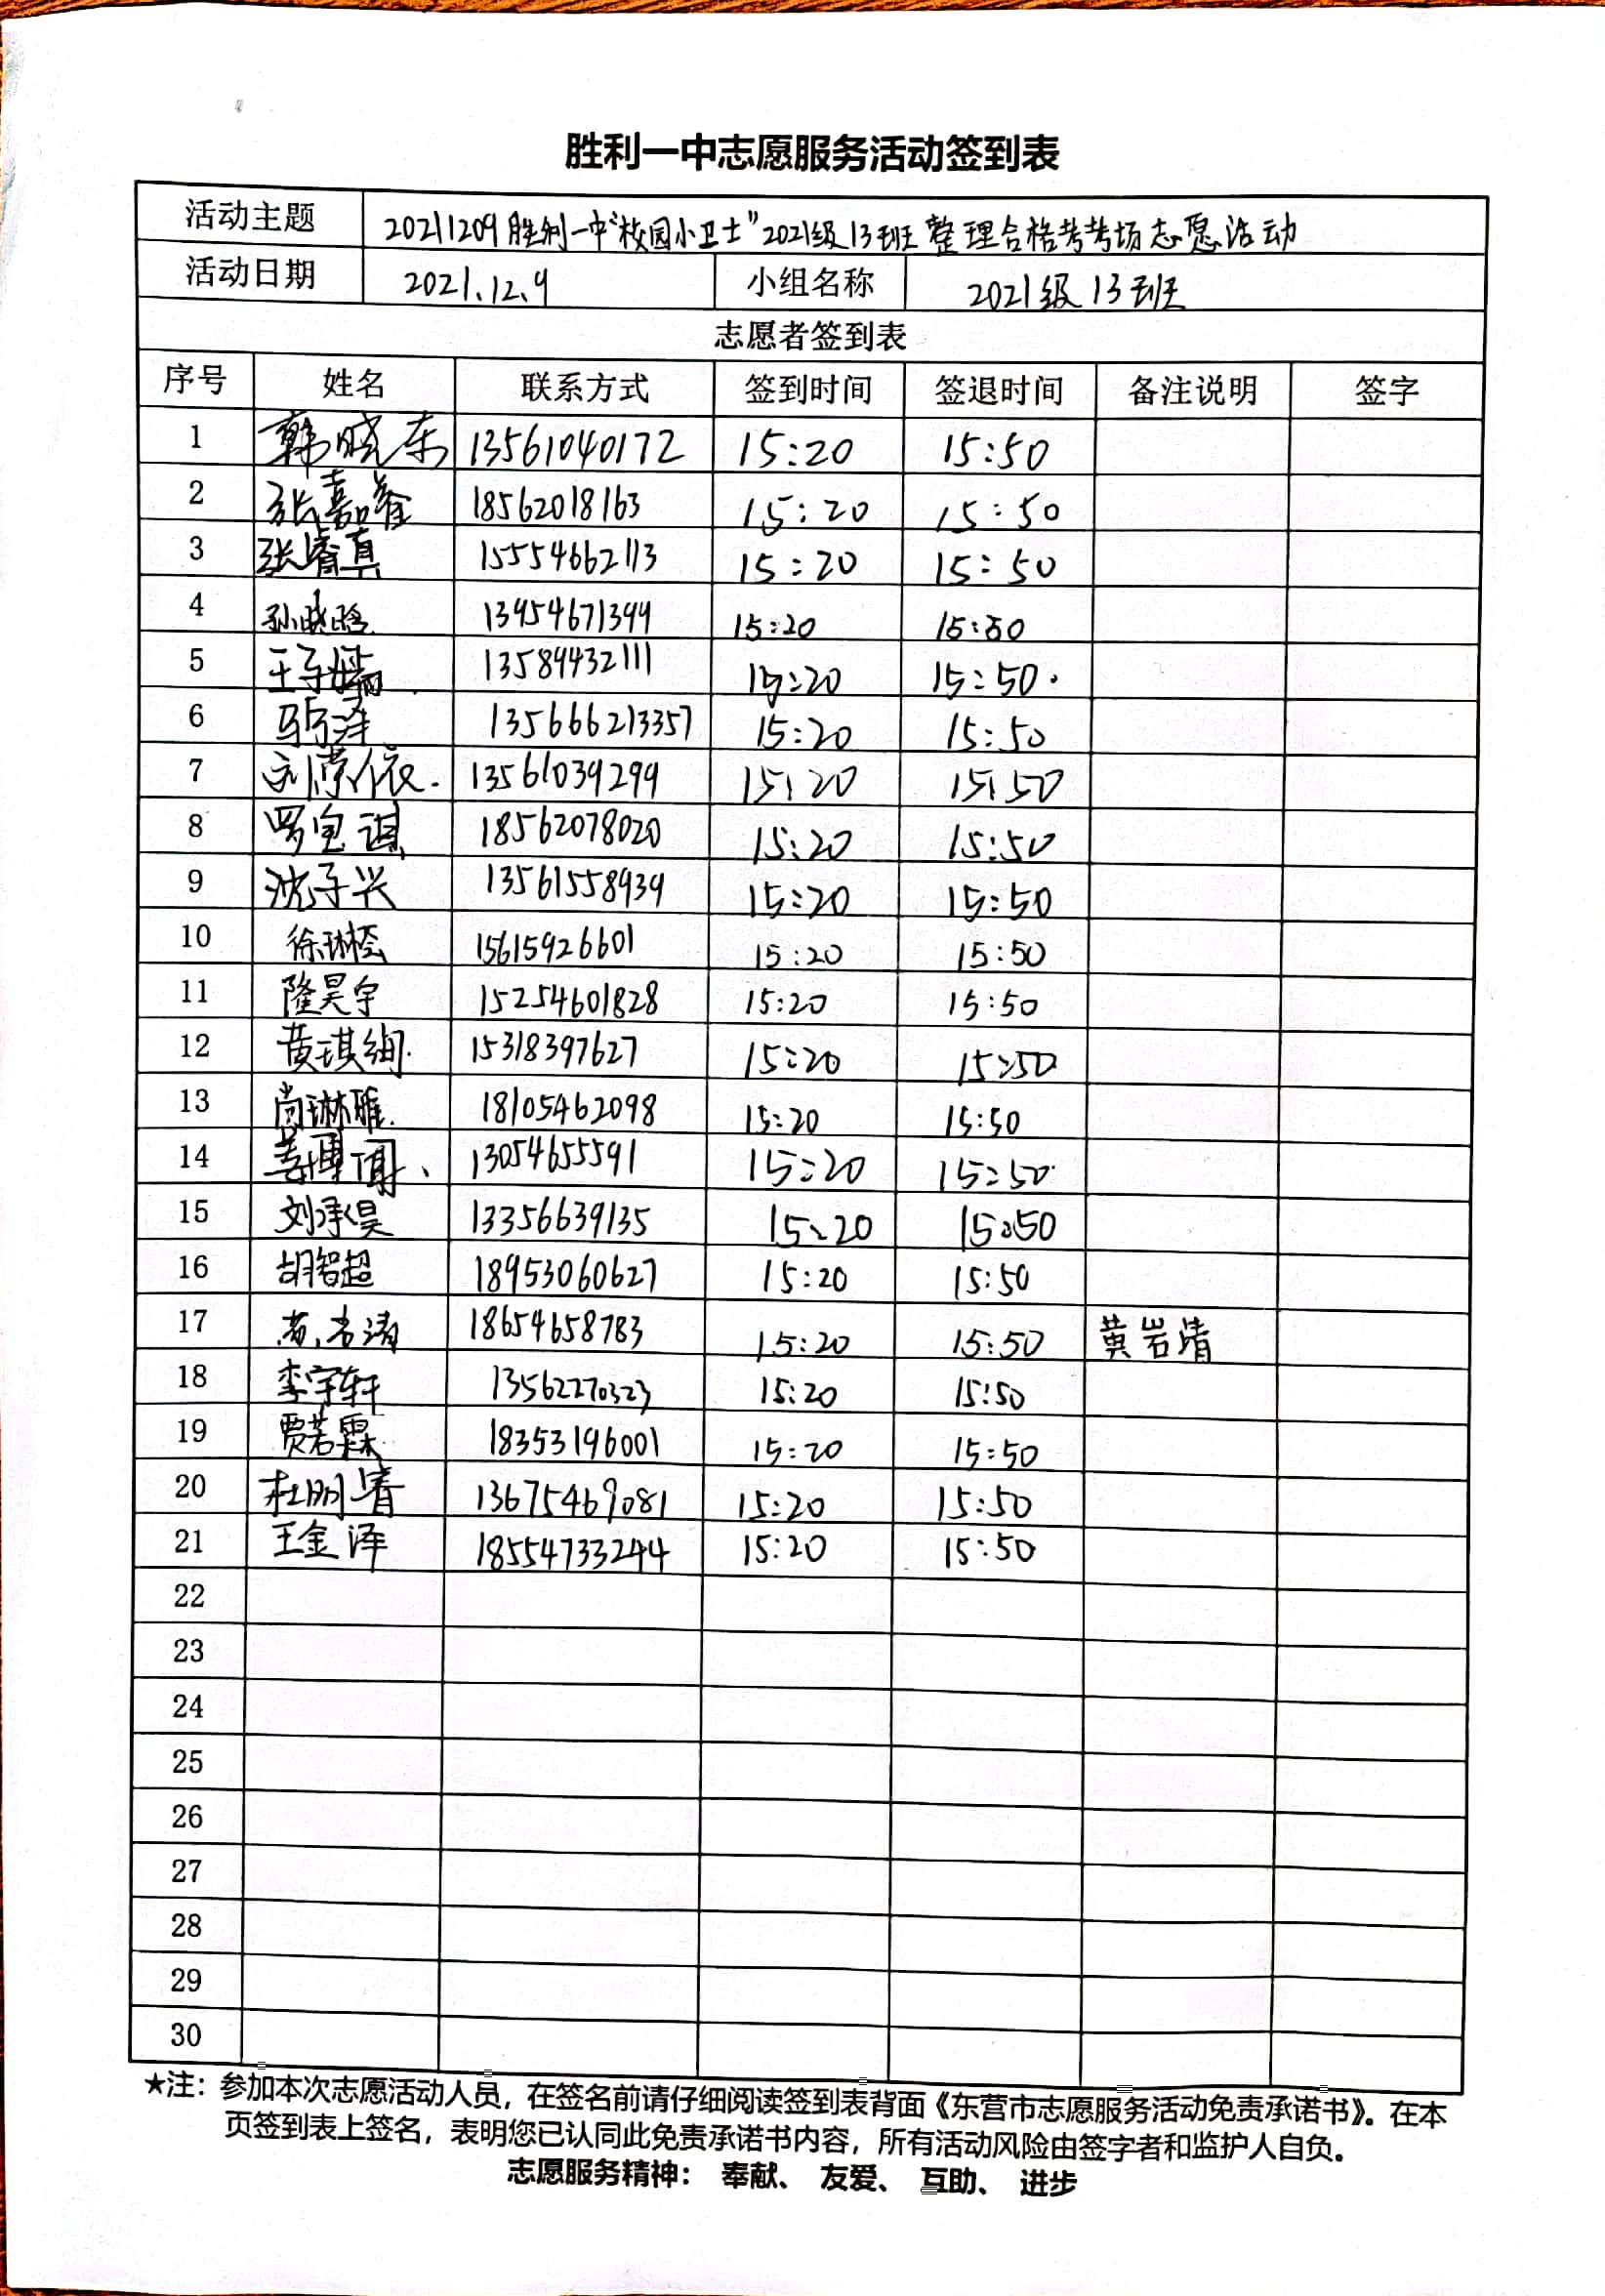 胜利一中志愿服务活动签到表
活动主题 20211209胜利一中“校园小卫士”2021级13班整理合格考考场志愿活动
活动日期 2021.12.9 小组名称 2021级13班
志愿者签到表
序号 姓名 联系方式 签到时间 签退时间 备注说明 签字
1 韩晓东 13561040172 15:20 15:50
2 张嘉睿 18562018163 15:20 15:50
3 张睿真 15554662113 15:20 15:50
4 孙晓晗 13954671399 15:20 15:50
5 王子嫣 13589432111 15:20 15:50
6 135666213357 15:20 15:50
7 刘棠依 13561039299 15:20 15:50
8 罗宝谌 18562078020 15:20 15:50
9 沈子兴 13561558939 15:20 15:50
10 15615926601 15:20 15:50
11 隆昊宇 15254601828 15:20 15:50
12 黄琪絢 15318397627 15:20 15:50
13 尚琳雅 18105462098 15:20 15:50
14 姜博闻 13054655591 15:20 15:50
15 刘承昊 13356639135 15:20 15:50
16 胡智超 18953060627 15:20 15:50
17 18654658783 15:20 15:50 黄岩清
18 李宇轩 13562270323 15:20 15:50
19 贾若霖 18353196001 15:20 15:50
20 杜明睿 13675469081 15:20 15:50
21 王金泽 18554733244 15:20 15:50
22
23
24
25
26
27
28
29
30
★注：参加本次志愿活动人员，在签名前请仔细阅读签到表背面《东营市志愿服务活动免责承诺书》。在本
页签到表上签名，表明您已认同此免责承诺书内容，所有活动风险由签字者和监护人自负。
志愿服务精神： 奉献、 友爱、 互助、 进步